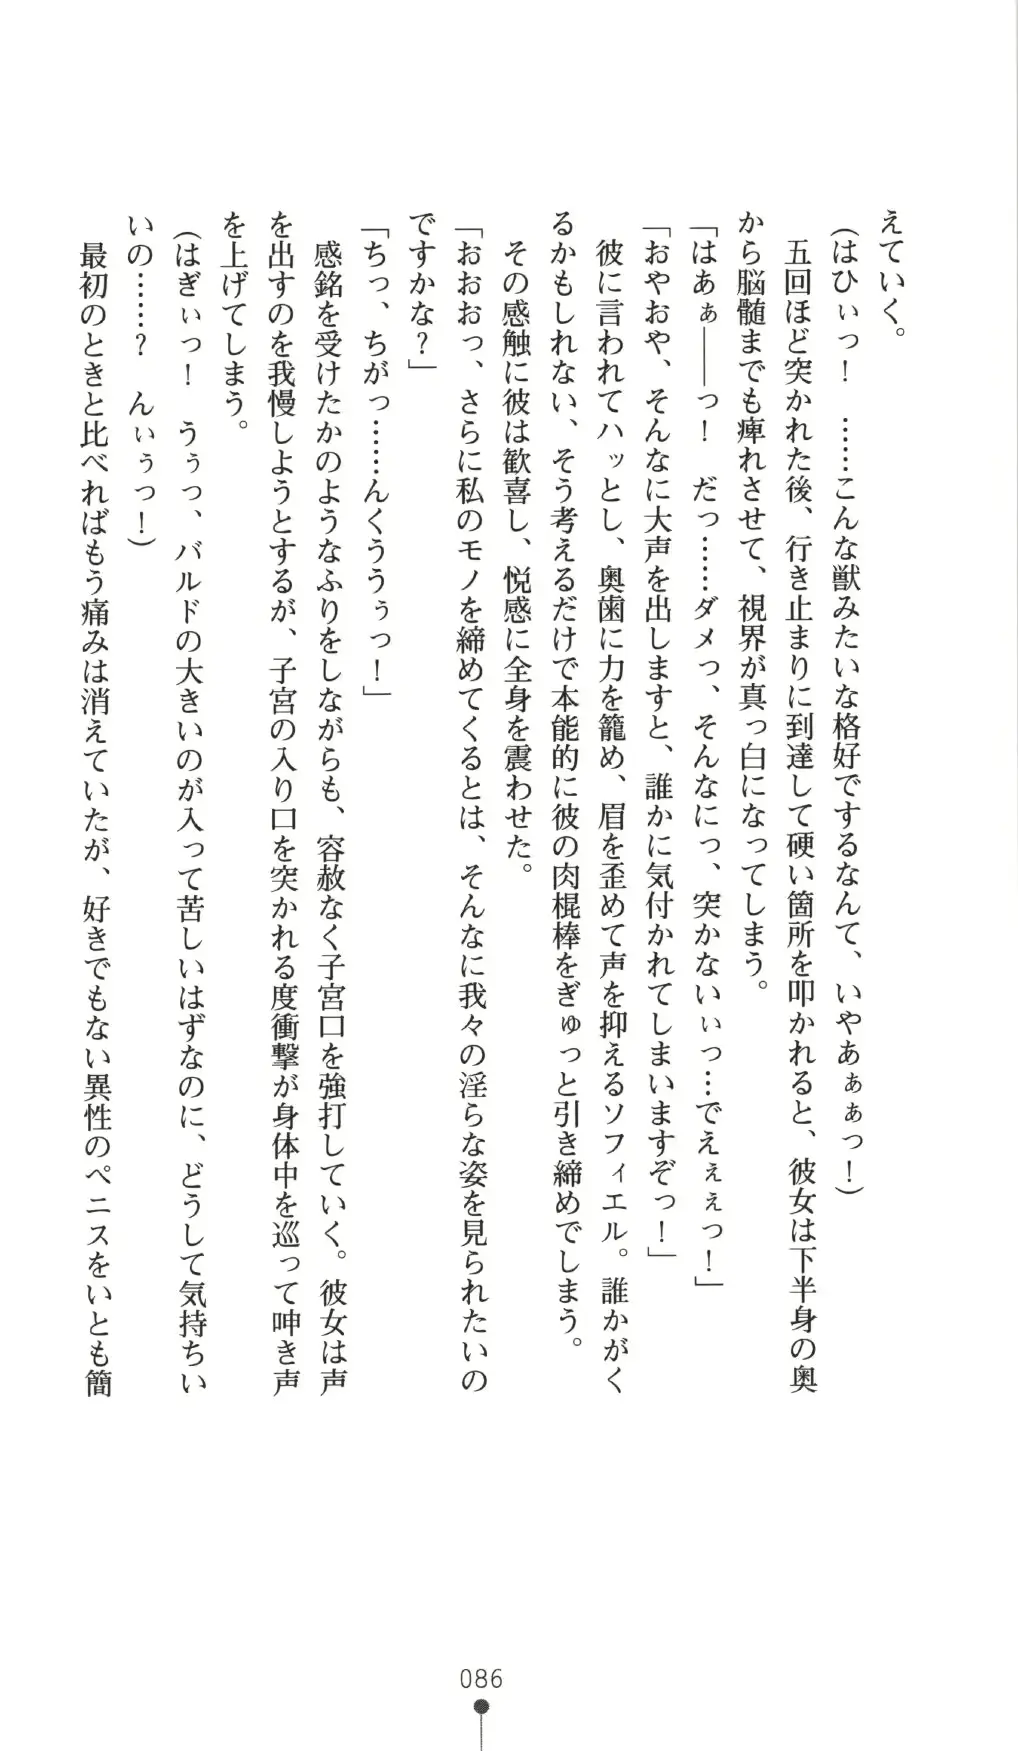 えていく。
（はひぃっ！　……こんな獣みたいな格好でするなんて、いやあぁぁっ！）
　五回ほど突かれた後、行き止まりに到達して硬い箇所を叩かれると、彼女は下半身の奥
から脳髄までも痺れさせて、視界が真っ白になってしまう。
「はあぁ――っ！　だっ……ダメっ、そんなにっ、突かないぃっ…でえぇぇっ！」
「おやおや、そんなに大声を出しますと、誰かに気付かれてしまいますぞっ！」
　彼に言われてハッとし、奥歯に力を籠め、眉を歪めて声を抑えるソフィエル。誰かがく
るかもしれない、そう考えるだけで本能的に彼の肉棍棒をぎゅっと引き締めでしまう。
　その感触に彼は歓喜し、悦感に全身を震わせた。
「おおおっ、さらに私のモノを締めてくるとは、そんなに我々の淫らな姿を見られたいの
ですかな？」
「ちっ、ちがっ……んくううぅっ！」
　感銘を受けたかのようなふりをしながらも、容赦なく子宮口を強打していく。彼女は声
を出すのを我慢しようとするが、子宮の入り口を突かれる度衝撃が身体中を巡って呻き声
を上げてしまう。
（はぎぃっ！　うぅっ、バルドの大きいのが入って苦しいはずなのに、どうして気持ちい
いの……？　んぃぅっ！）
　最初のときと比べればもう痛みは消えていたが、好きでもない異性のペニスをいとも簡
086